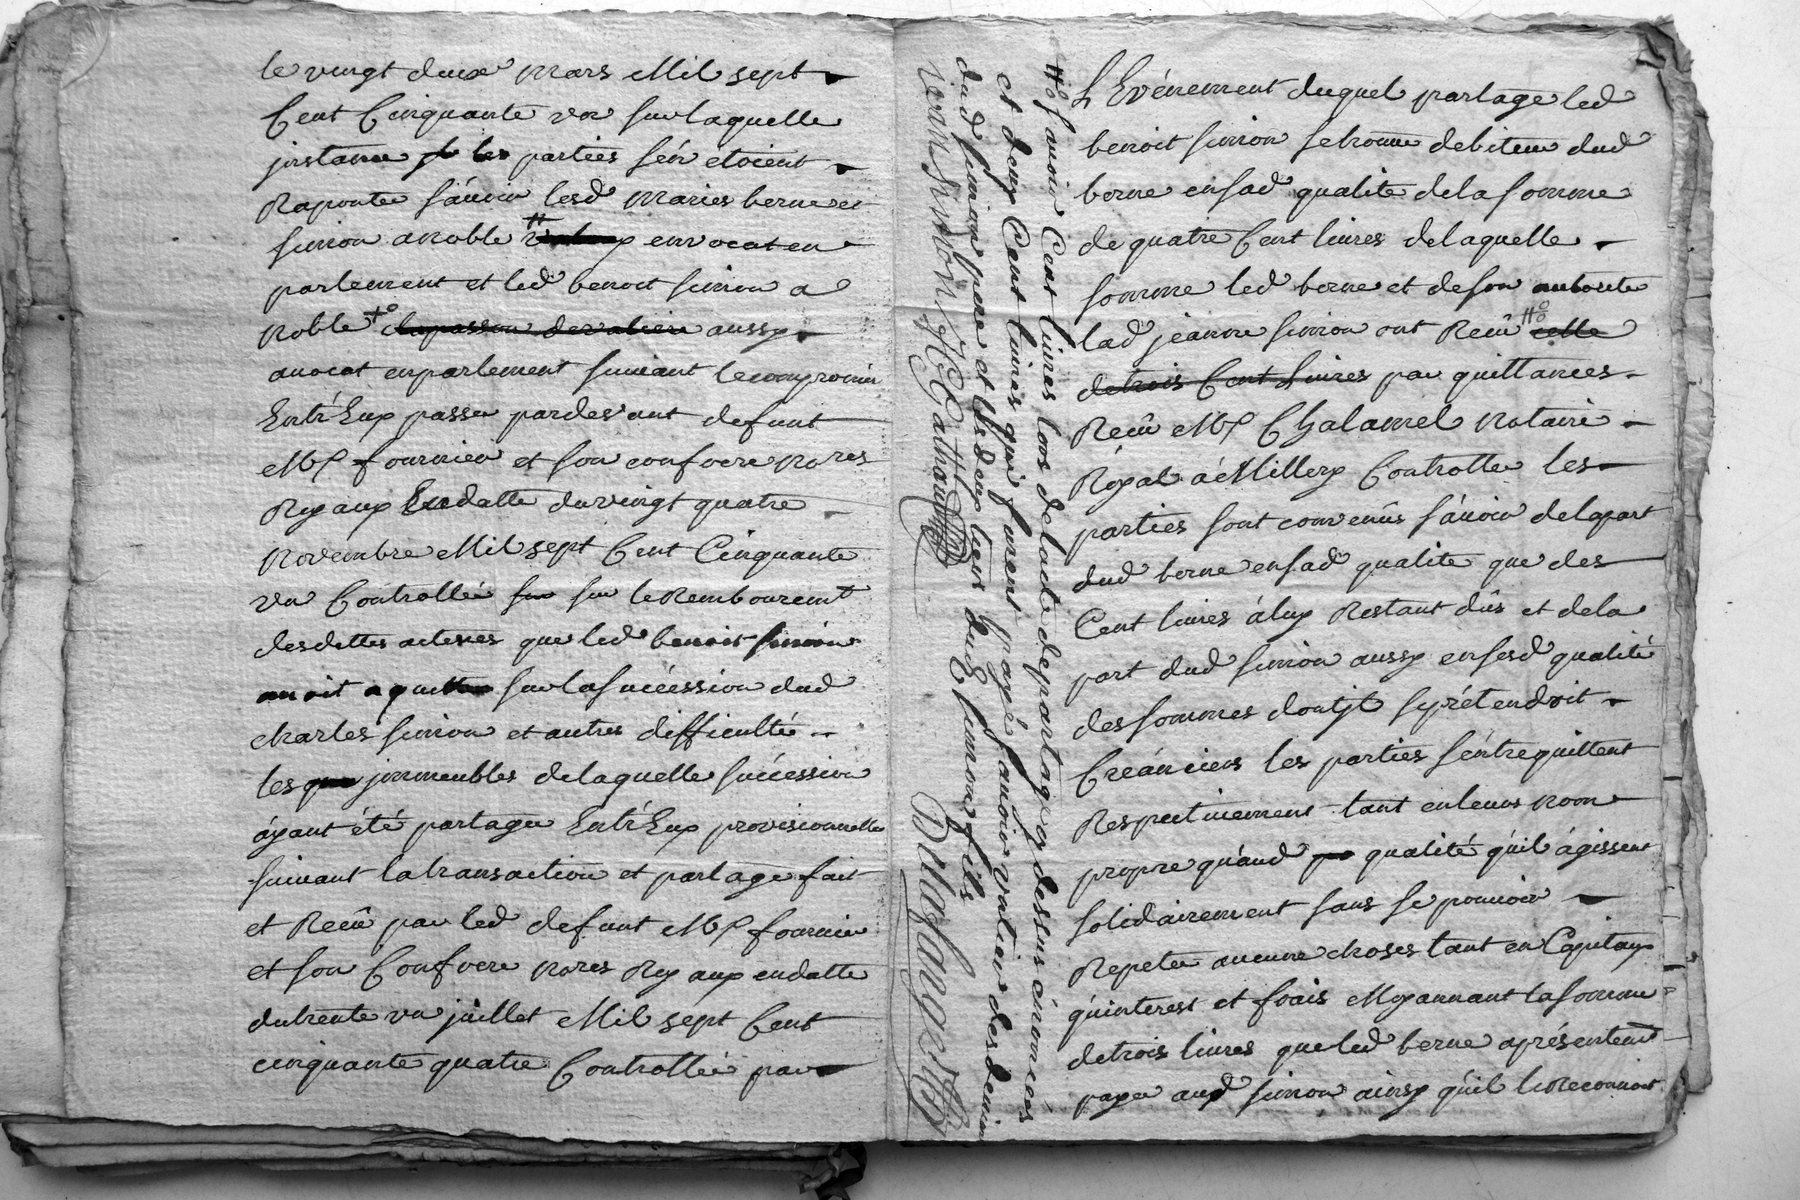 le vingt deux mars Mil sept
Cent Cinquante un sur laquelle
jnstance les parties s'en etoient
Raportée sçávoir lesd mariés berne et
simion a noble envocat en
parlement et led benoit simion a
noble aussy
avocat en parlement suivant le compromis
Entr'Eux passer pardevant defunt
Me fournier et son confrere nores
Royaux En datte du vingt quatre
Novembre Mil sept Cent Cinquante
un Controllé sur le Rembourcemt
des dettes actives que led benoit simion
avoit aquitter sur la succéssion dud
charles simion et autres difficulté
les jmmeubles de laquelle succéssion
áyant été partager Entr'Eux provisionnelle
suivant la transaction et partage fait
et Receu par led defunt Me fournier
et son Confrere nores Royaux en datte
du trente un juillet Mil sept Cent
cinquante quatre Controllée par
#o sçavoir Cent livres lors de l'acte de partage cy dessus énoncés
et deux Cent livres qui furent payé sçavoir
dud simion pere et dud simion fils
L'Evénement duquel partage led
benoit simion se trouve debiteur dud
berne en sad qualité de la somme
de quatre Cent livres de laquelle
somme led berne et de son autorite
lad jeanne simion ont Receu #o celle
de trois Cent livres par quittances
Receu Me Chalamel Notaire
Royal á Millery Controlle les
parties sont convenus sçávoir de la part
dud berne en sad qualité que des
Cent livres á luy Restant dûs et de la
part dud simion aussy en sesd qualité
des sommes dont jl se prétendoit
Creánciers les parties s'entrequittent
Respectivement tant en leurs nom
propre qu'aud qualité qu'il ágissent
solidairement sans se pouvoir
Repeter aucune choses tant en Capitaux
qu'interest et frais Moyannant la somme
de trois livres que led berne a présentemt
payer aud simion ainsy qu'il le Reconnoit